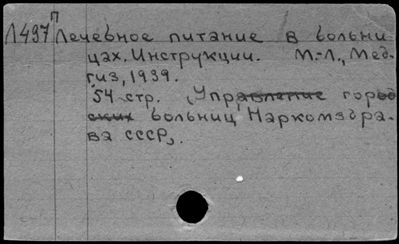 Л497
П
Лечебное питание в больни
цах. Инструкции. М.-Л., Мед-
гиз, 1939.
54 стр. (Управление город
ских больниц Наркомздра-
ва СССР).